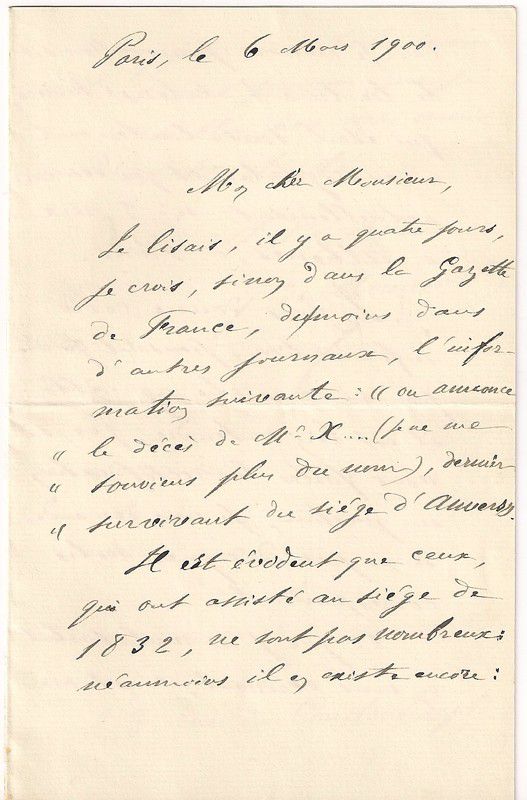 Paris, le 6 Mars 1900.
Mon cher Monsieur,
Je lisais, il y a quatre jours,
je crois, sinon dans la Gazette
de France, du moins dans
d'autres journaux, l'infor-
mation suivante : " on annonce
" le décès de Mr X.... (je ne me
" souviens plus du nom), dernier
" survivant du siége d'Anvers.
Il est évident que ceux,
qui ont assisté au siége de
1832, ne sont pas nombreux :
néanmoins il en existe encore :